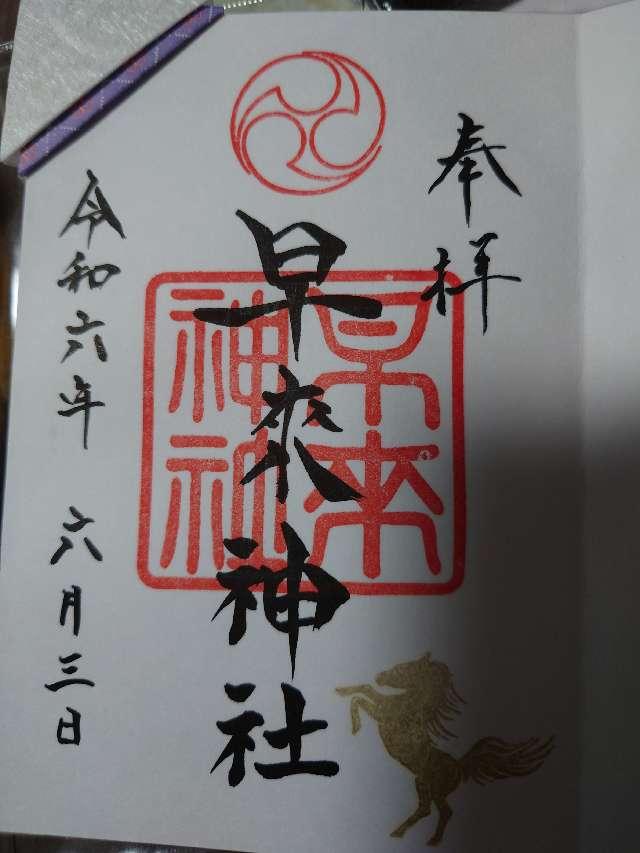 奉拝
早来神社
早来
神社
令和六年 六月三日